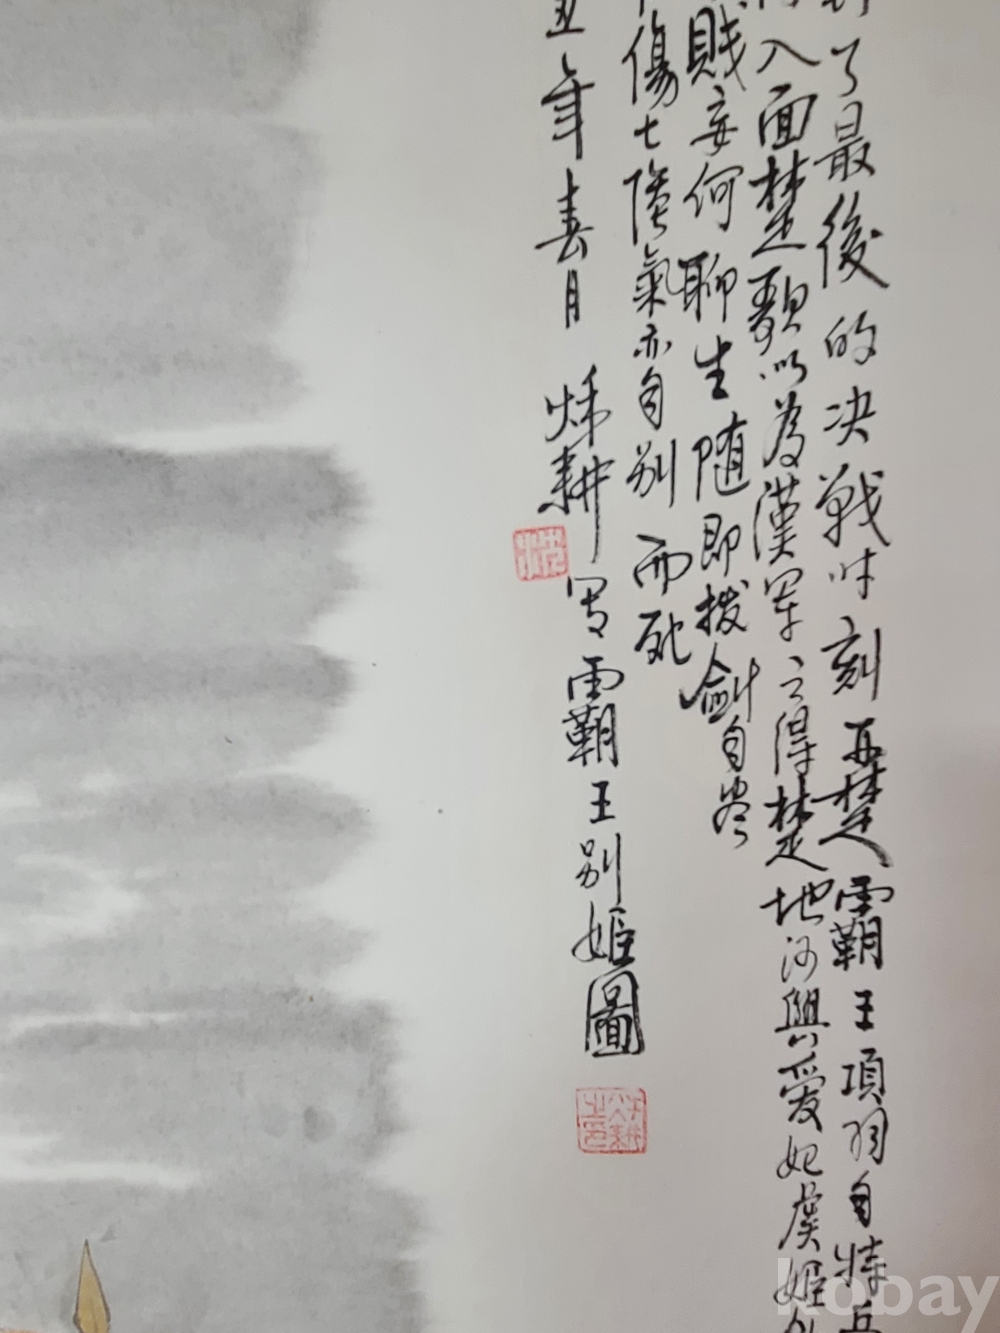 了最後的决戰时刻西楚霸王項羽自恃兵
入面楚歌以為漢軍已得楚地乃與愛妃虞姬
賤妾何聊生随即拔劍自尽
傷七隂氣亦自别而死
丑年春月
耕写霸王别姬圖
kobay